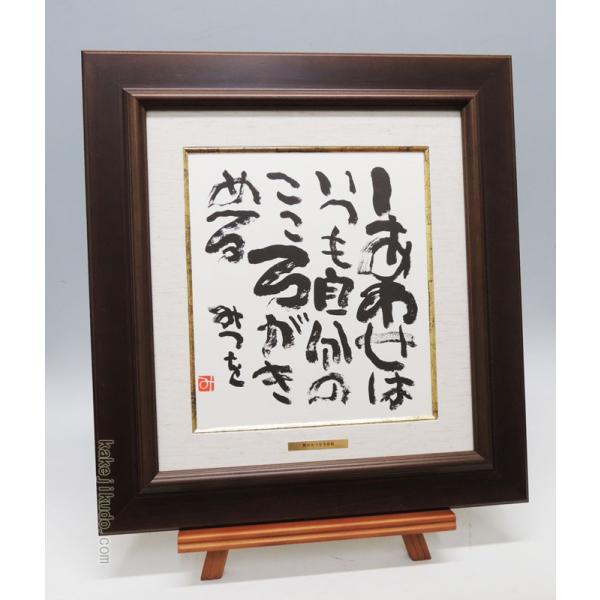 しあわせは
いつも自分の
こころがき
める
みつを
み
kakejikudo.com